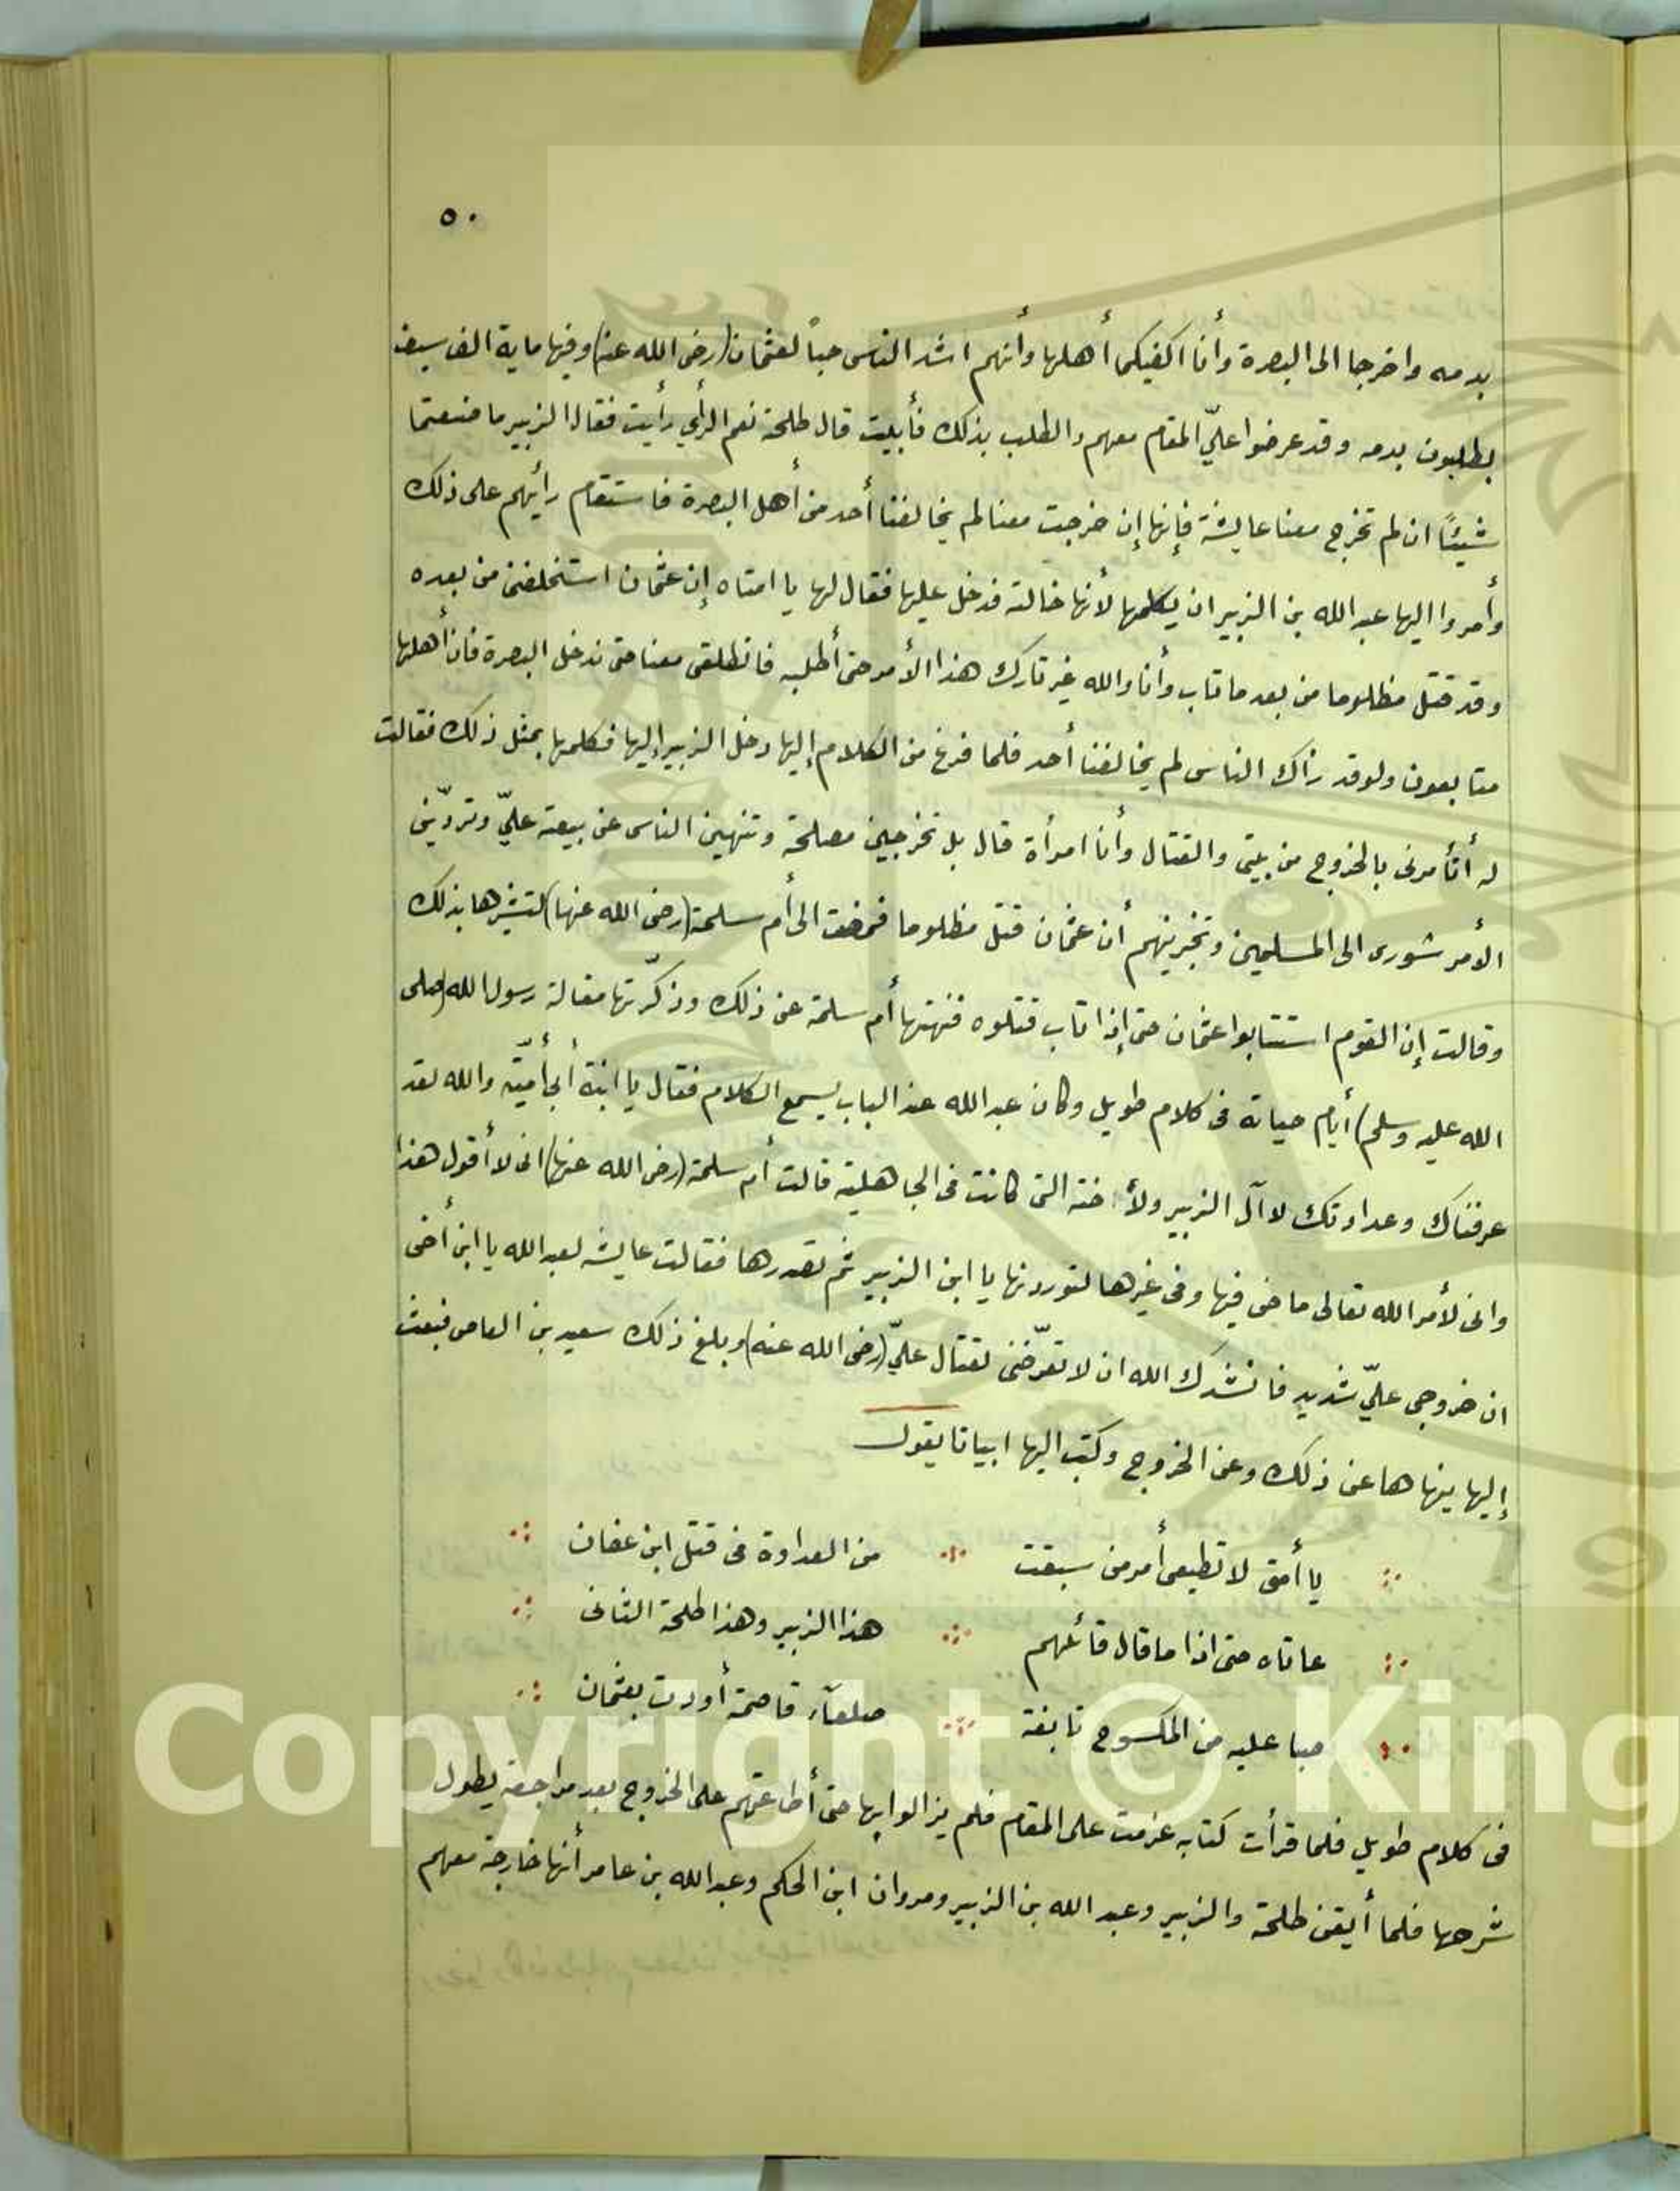 ٥٠
بدمه واخرجا الى البصرة وأنا اكفيكما أهلها وأنهم اشد الناس حباً لعثمان (رضى الله عنه) وفيها ماية الف سيف
يطلبون بدمه وقد عرضوا علىّ المقام معهم والطلب بذلك فأبيت قال طلحة نعم الرأي رأيت فقال الزبير ما صنعتما
شيئًا ان لم تخرج معنا عايشة فإنها إن خرجت معنا لم يخالفنا أحد من أهل البصرة فاستقام رأيهم على ذلك
وأمروا اليها عبد الله بن الزبير ان يكلمها لأنها خالته فدخل عليها فقال لها يا امتاه إن عثمان استخلفنى من بعده
وقد قتل مظلوما من بعد ما تاب وأنا والله غير تارك هذا الأمر حتى أطلبه فانطلقى معنا حتى ندخل البصرة فان أهلها
متابعون ولو قد رأك الناس لم يخالفنا أحد فلما فرغ من الكلام إليها دخل الزبير إليها فكلمها بمثل ذلك فقالت
له أتأمرنى بالخروج من بيتى والقتال وأنا امرأة قال بل تخرجين مصلحة وتنهين الناس عن بيعة علىّ وتردّين
الأمر شورى الى المسلمين وتخبرينهم أن عثمان قتل مظلوما فمضت الى أم سلمة (رضى الله عنها) لتبشرها بذلك
وقالت إن القوم استتابوا عثمان حتى إذا تاب قتلوه فنهتها أم سلمة عن ذلك وذكّرتها مقالة رسول الله (صلى
الله عليه وسلم) أيام حياته فى كلام طويل وكان عبد الله عند الباب يسمع الكلام فقال يا ابنة أبى أميّة والله لقد
عرفناك وعداوتك لاآل الزبير ولأ خته التى كانت فى الجاهلية قالت أم سلمة (رضى الله عنها) انى لا أقول هذا
وانى لأمر الله تعالى ماضى فيها وفى غيرها لتوردنها يا ابن الزبير ثم تصدرها فقالت عايشه لعبد الله يا ابن أختى
ان خروجى علىّ شديد فانشدك الله ان لا تعرّضنى لقتال علىّ (رضى الله عنه) وبلغ ذلك سعيد بن العاص فبعث
إليها ينهاها عن ذلك وعن الخروج وكتب اليها ابياتا يقول
يا أمتى لا تطيعى أمر من سبقت ∴ من العداوة فى قتل ابن عفان
عاناه حتى اذا ما قال قائلهم ∴ هذا الزبير وهذا طلحة الثانى
صبا عليه من المكسوح ∴ صلعآء قاصمة أودت بعثمان
فى كلام طويل فلما قرأت كتابه عزمت على المقام فلم يزالوا بها حتى أطاعتهم على الخروج بعد مراجعة يطول
شرحها فلما أيقن طلحة والزبير وعبد الله بن الزبير ومروان ابن الحكم وعبد الله بن عامر أنها خارجة معهم
Copyright © King